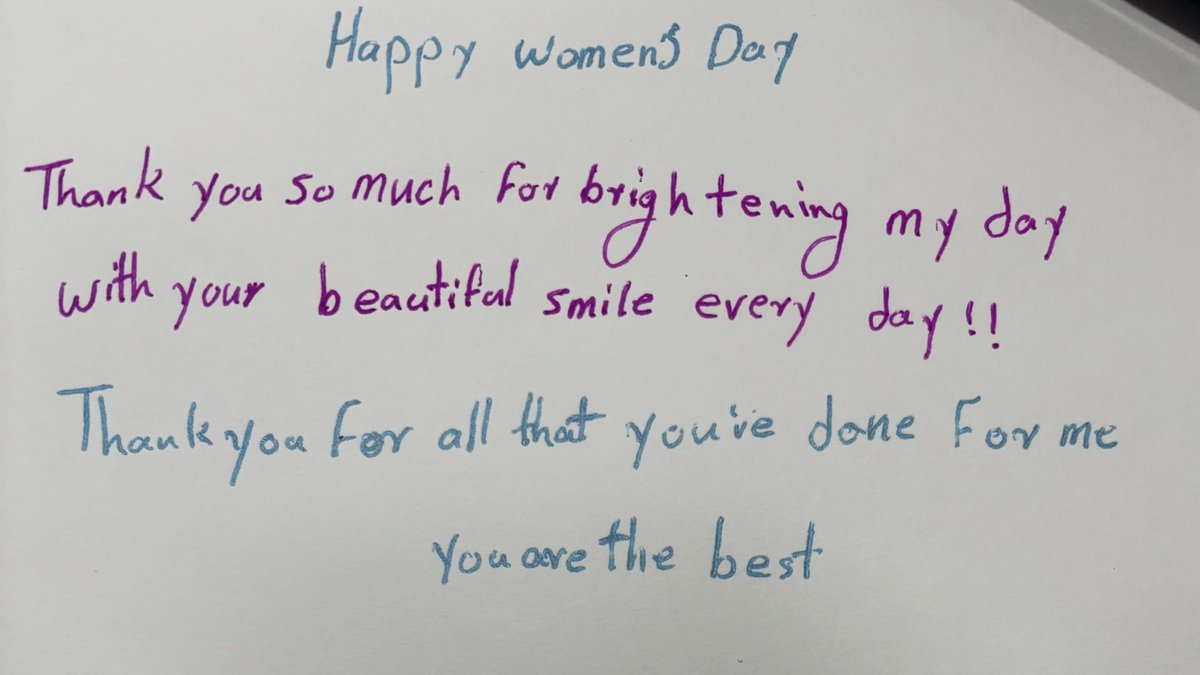 Happy Women's Day
Thank you so much for brightening my day
with your beautiful smile every day!!
Thank you for all that you've done for me
you are the best